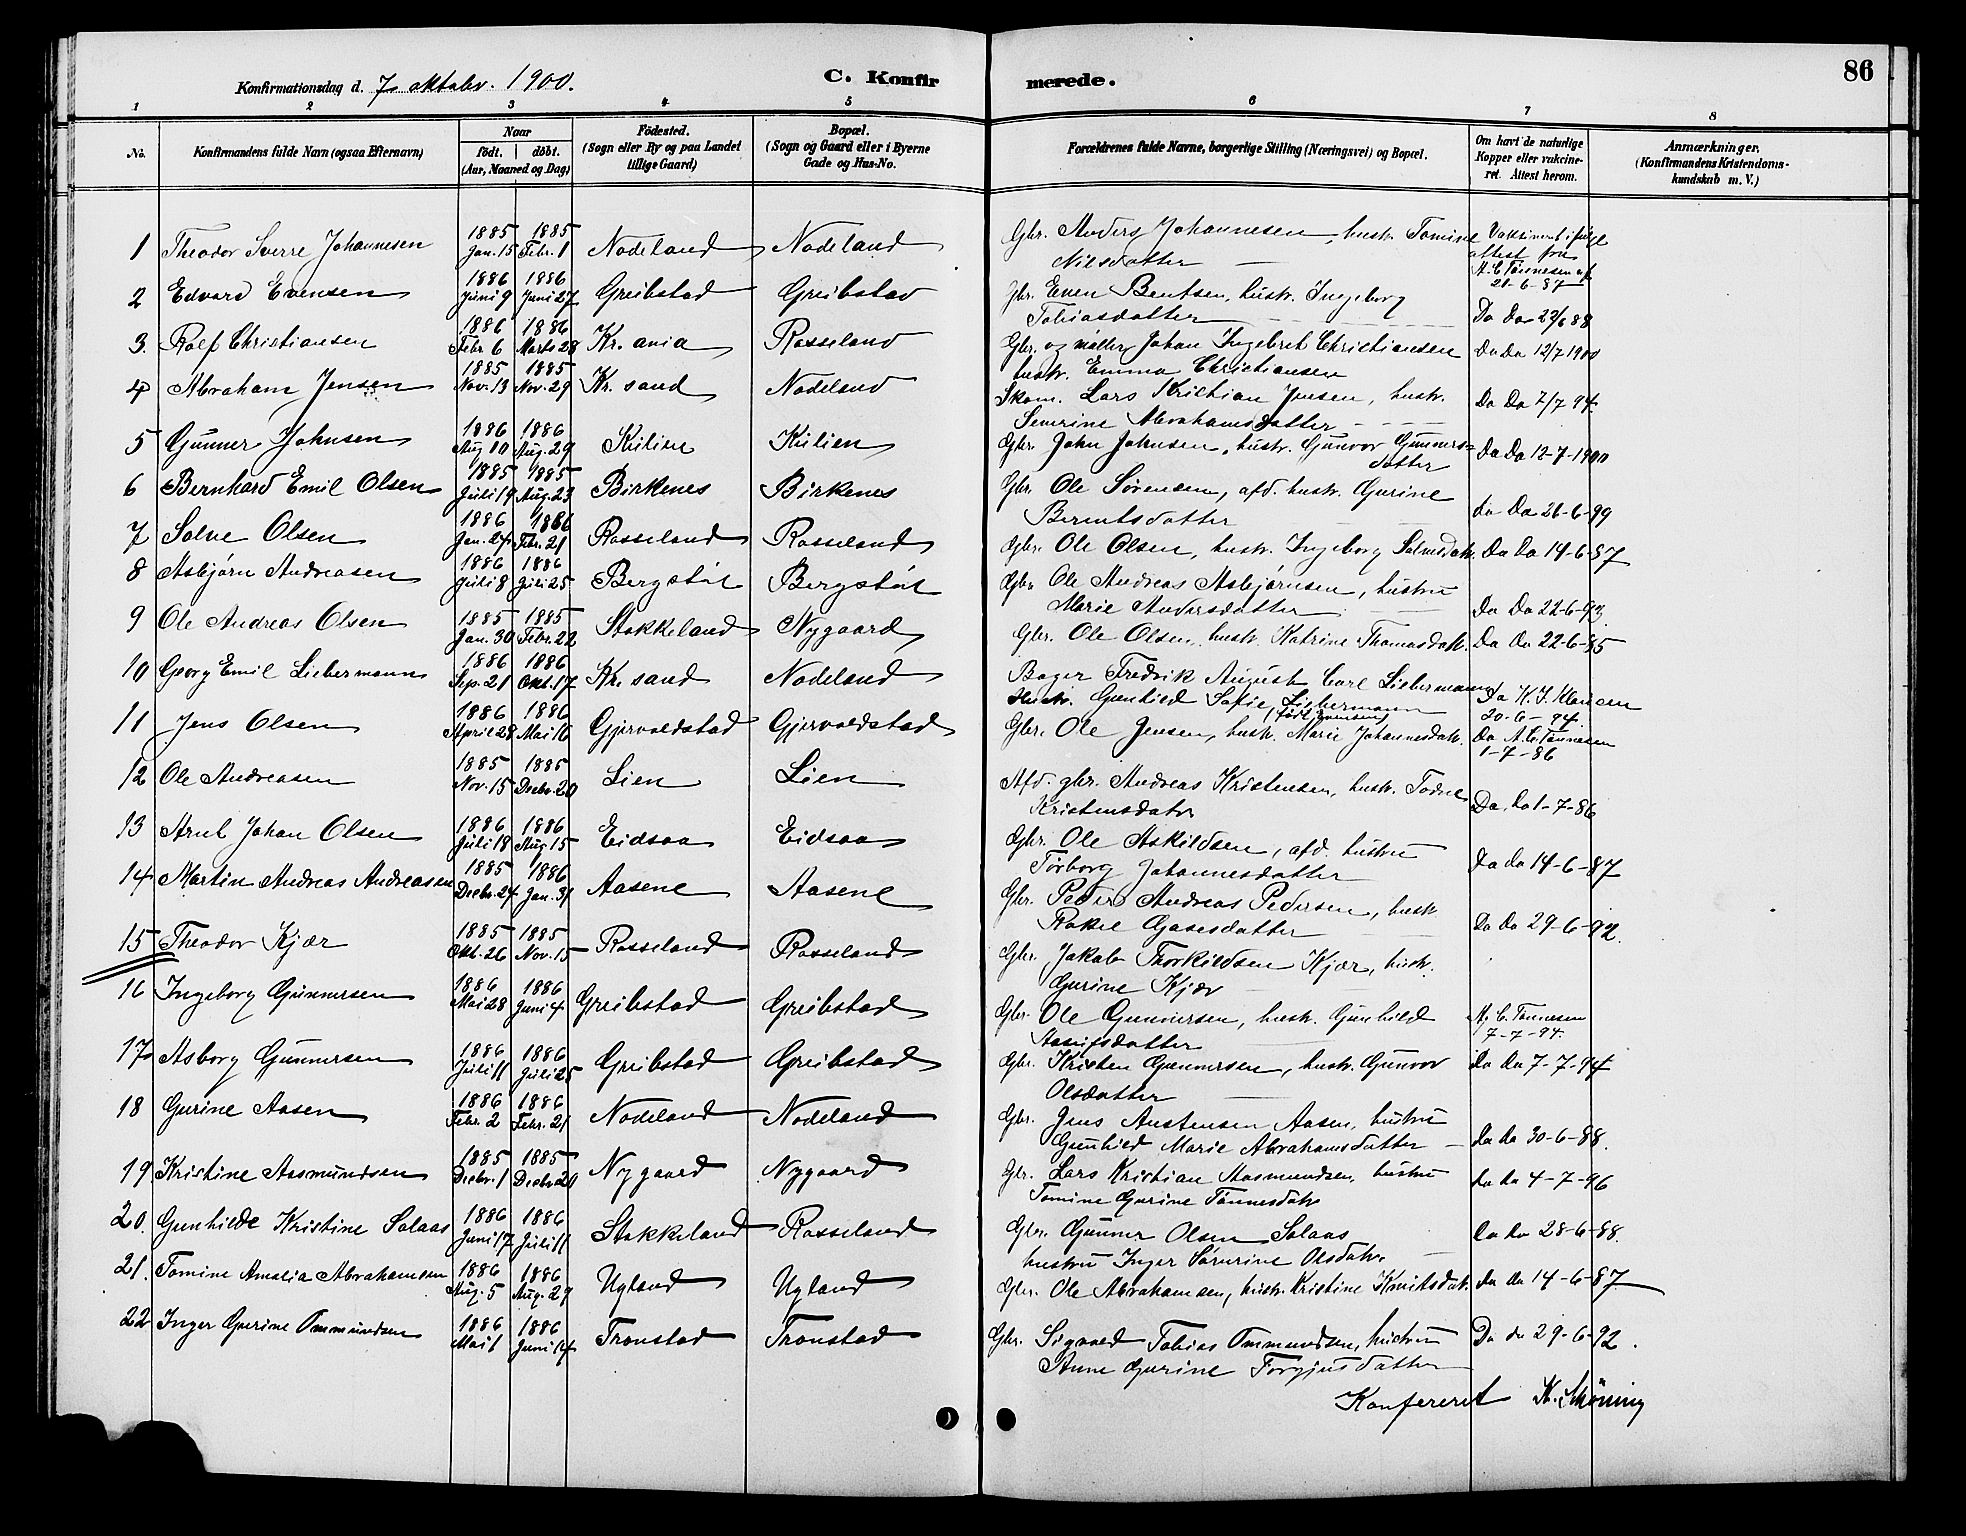 Konfirmationsdag d. 7 oktober. 1900.
C. Konfirmerede.
86
1 2 3 4 5 6 7 8
No.
Konfirmandens fulde Navn (ogsaa Efternavn)
Naar
født. | døbt.
(Aar, Maaned og Dag)
Fødested.
(Sogn eller By og paa Landet
tillige Gaard)
Bopæl.
(Sogn og Gaard eller i Byerne
Gade og Hus-No.
Forældrenes fulde Navne, borgerlige Stilling (Næringsvei) og Bopæl.
Om havt de naturlige
Kopper eller vakcine-
ret. Attest herom.
Anmærkninger.
(Konfirmandens Kristendoms-
kundskab m. V.)
1 Theodor Sverre Johannesen 1885 Jan. 15 1885 Febr. 1 Nodeland Nodeland Gbr. Anders Johannesen, hustr. Tomine
Nilsdatter
attest fra
A. C. Tønnesen af
21-6-87
2 Edvard Evensen 1886 Juni 9 1886 Juni 27 Greibstad Greibstad Gbr. Even Bentsen, hustr. Ingeborg
Tobiasdatter Do Do 22/6 88
3. Ralf Christiansen 1886 Febr. 6 1886 Marts 28 Kr.ania Rosseland Gbr. og møller Johan Ingebret Christiansen
hustr. Emma Christiansen Do Do 12/7 1900
4 Abraham Jensen 1885 Nov. 13 1885 Nov. 29 Kr.sand Nodeland Skom. Lars Kristian Jensen, hustr.
Severine Abrahamsdatter Do Do 7/7 94.
5 Gunner Johnsen 1886 Aug 10 1886 Aug. 29 Kilien Kilien Gbr. John Johnsen, hustr. Gunvor Gunners-
datter Do Do 12-7-1900
6 Bernhard Emil Olsen 1885 Juli 19 1885 Aug. 23 Birkenes Birkenes Gbr. Ole Sørensen, afd. hustr. Gurine
Berentsdatter do Do 26-6-99
7 Salve Olsen 1886 Jan. 24 1886 Febr. 21 Rosseland Rosseland Gbr. Ole Olsen, hustr. Ingeborg Salvesdatr. Do Do 14-6-87
8 Asbjørn Andreasen 1886 Juli 8 1886 Juli 25 Bergstøl Bergstøl Gbr. Ole Andreas Asbjørnsen, hustru
Marie Andersdatter Do Do 22-6-93.
9 Ole Andreas Olsen 1885 Jan. 30 1885 Febr. 22 Stokkeland Nygaard Gbr. Ole Olsen, hustr. Katrine Thomasdatr. Do Do 22-6-85
10 Georg Emil Liebermann 1886 Sep. 21 1886 Okt. 17 Kr.sand Nodeland Bager Fredrik August Carl Liebermann
Hustr. Gunhild Sofie Liebermann
20-6-94.
11 Jens Olsen 1886 April 28 1886 Mai 16 Gjervoldstad Gjervoldstad Gbr. Ole Jensen, hustr. Marie Johannesdatr. Do A. C. Tønnesen
1-7-86
12 Ole Andreasen 1885 Nov. 15 1885 Decbr. 20 Lien Lien Afd. gbr. Andreas Kristensen, hustr. Todne
Kristensdatr Do. Do 1-7-86
13 Arnt Johan Olsen 1886 Juli 18 1886 Aug 15 Eidsaa Eidsaa Gbr. Ole Askildsen, afd. hustru
Torborg Johannesdatter Do do 14-6-87
14 Martin Andreas Andreasen 1885 Decbr. 24 1886 Jan. 31 Aasene Aasene Gbr. Peder Andreas Pedersen, hustr.
Rakel Gasesdatter Do Do 29-6-92.
15 Theodor Kjær 1885 Okt. 26 1885 Nov. 15 Rosseland Rosseland Gbr. Jakob Thorkildsen Kjær, hustr.
Gurine Kjær
16 Ingeborg Gunnersen 1886 Mai 28 1886 Juni 4 Greibstad Greibstad Gbr. Ole Gunnersen, hustr. Gunhild
A. C. Tønnesen
7-7-94.
17 Asborg Gunnersen 1886 Juli 11 1886 Juli 25 Greibstad Greibstad Gbr. Kristen Gunnersen, hustr. Gunvor
Olsdatter Do Do 7-7-94
18 Gurine Aasen 1886 Febr. 2 1886 Febr. 21 Nodeland Nodeland Gbr. Jens Austensen Aasen, hustru
Gunhild Marie Abrahamsdatter Do do 30-6-88.
19 Kristine Aasmundsen 1885 Decbr. 1 1885 Decbr 20 Nygaard Nygaard Gbr. Lars Kristian Aasmundsen, hustru
Tomine Gurine Tønnesdatr Do do 4-7-96
20. Gunhilde Kristine Solaas 1886 Juni 17 1886 Juli 11 Stokkeland Rosseland Gbr. Gunner Olsen Solaas
hustru Inger Sørine Olsdatr. Do Do 28-6-88.
21. Tomine Amalia Abrahamsen 1886 Aug. 5 1886 Aug. 29 Ugland Ugland Gbr. Ole Abrahamsen, hustr. Kristine Knutsdatr. Do Do 14-6-87
22 Inger Gurine Ommundsen 1886 Mai 1 1886 Juni 14 Tronstad Tronstad Gbr. Sigvald Tobias Ommundsen, hustru
Anne Gurine Torgjusdatter Do do 29-6-92.
Konfereret K. Schöning